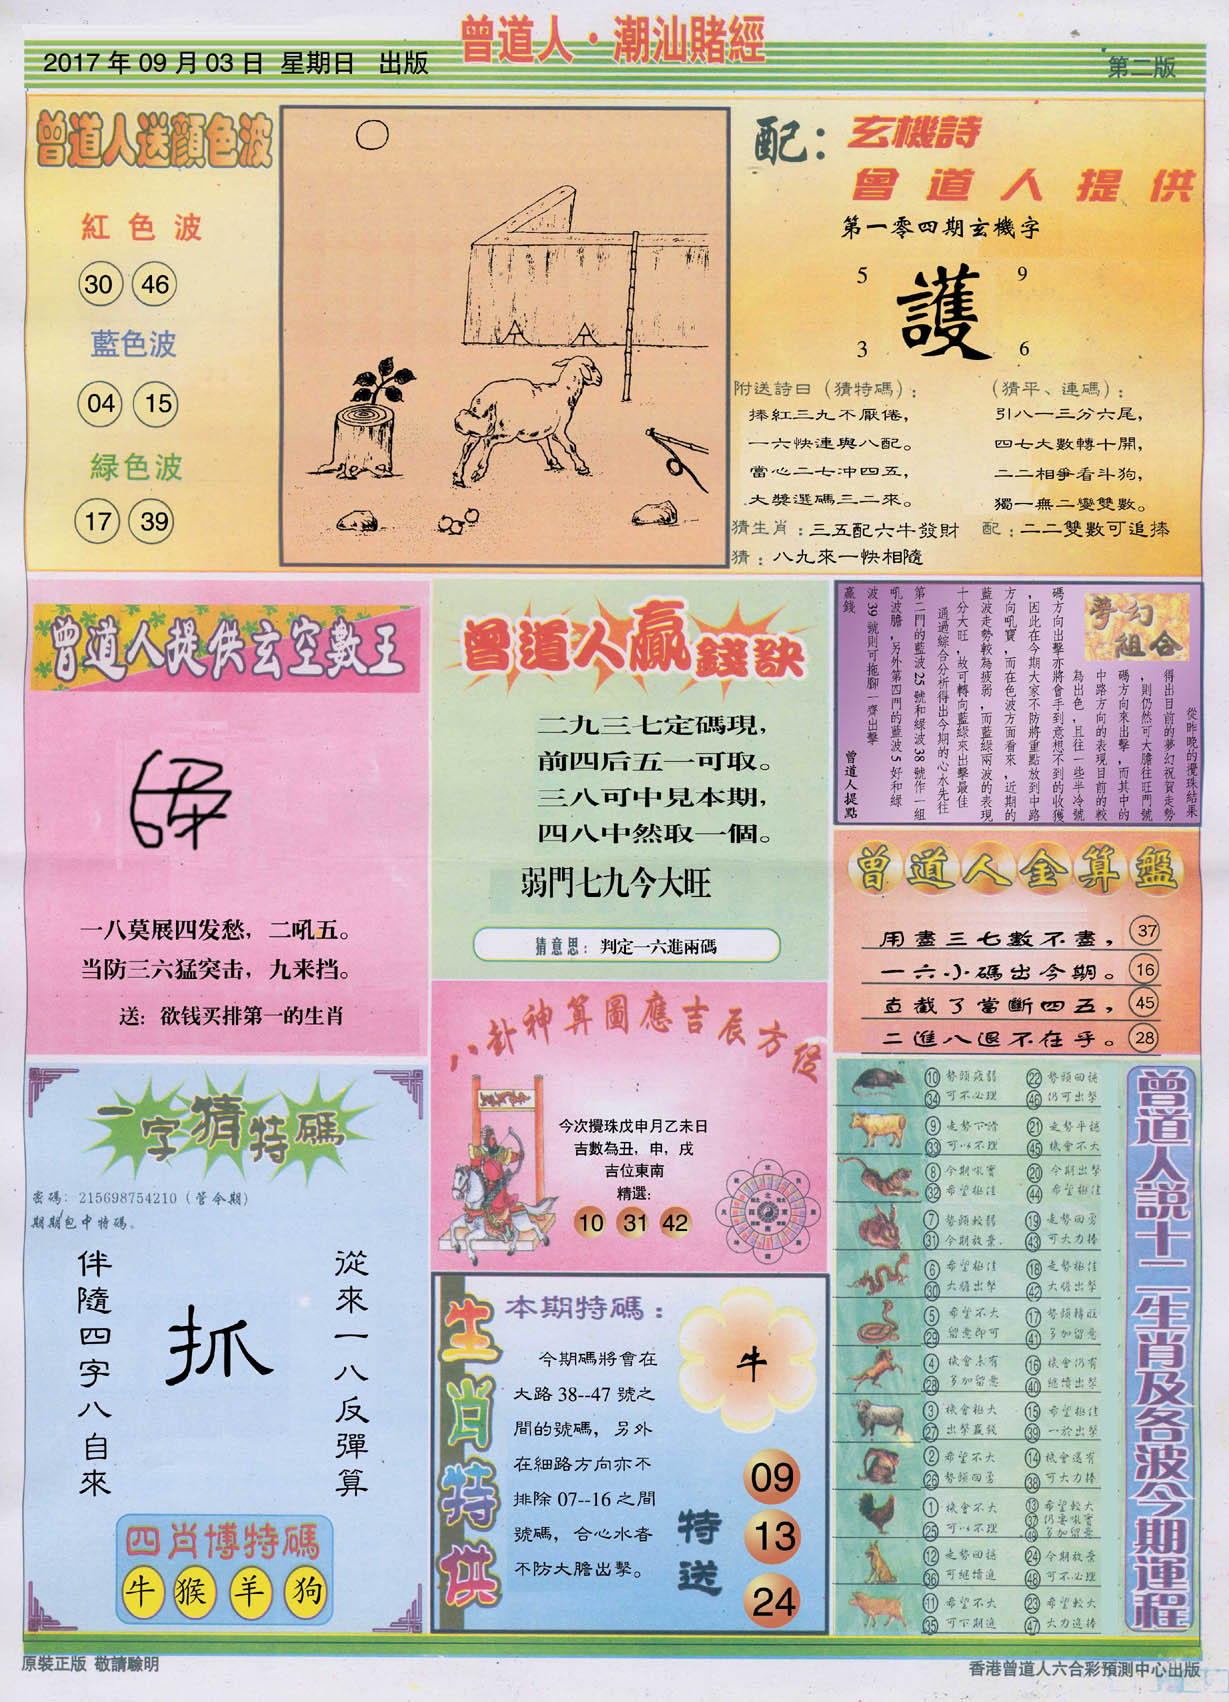 曾道人·潮汕賭經
2017年09月03日 星期日 出版
第二版
曾道人送顏色波
紅色波
30 46
藍色波
04 15
緑色波
17 39
配：玄機詩
曾道人提供
第一零四期玄機字
5 9
護
3 6
附送詩曰（猜特碼）：
捧紅三九不厭倦，
一六快連與八配。
當心二七冲四五，
大獎選碼三二來。
（猜平、連碼）：
引八一三分六尾，
四七大數轉十開，
二二相爭看斗狗，
獨一無二變雙數。
猜生肖：三五配六牛發財
配：二二雙數可追捧
猜：八九來一快相隨
曾道人提供玄空數王
一八莫展四发愁，二吼五。
当防三六猛突击，九来挡。
送：欲钱买排第一的生肖
曾道人贏錢訣
二九三七定碼現，
前四后五一可取。
三八可中見本期，
四八中然取一個。
弱門七九今大旺
猜意思：判定一六進兩碼
夢幻
組合
從昨晚的攪珠結果
得出目前的夢幻祝賀走勢
，則仍然可大膽往旺門號
碼方向來出擊，而其中的
中路方向的表現目前的較
為出色，且往一些半冷號
碼方向出擊亦將會手到意想不到的收獲
，因此在今期大家不防將重點放到中路
方向吼寶，而在色波方面看來，近期的
藍波走勢較為疲弱，而藍綠兩波的表現
十分大旺，故可轉向藍綠來出擊最佳
通過綜合分析得出今期的心水先往
第二門的藍波25號和綠波38號作一組
吼波膽，另外第四門的藍波5好和綠
波39號則可拖腳一齊出擊
贏錢
曾道人提點
曾道人金算盤
用盡三七數不盡，37
一六小碼出今期。16
直截了當斷四五，45
二進八退不在乎。28
八卦神算圖應吉辰方位
今次攪珠戊申月乙未日
吉數為丑，申，戌
吉位東南
精選：
10 31 42
一字猜特碼
密碼：215698754210（管今期）
期期包中特碼。
從來一八反彈算
抓
伴隨四字八自來
四肖博特碼
牛 猴 羊 狗
生肖特供
本期特碼：
今期碼將會在
大路38--47號之
間的號碼，另外
在細路方向亦不
排除07--16之間
號碼，合心水者
不防大膽出擊。
牛
特送
09
13
24
曾道人説十二生肖及各波今期運程
10 34 勢頭疲弱 可不必理
22 46 勢頭回穩 仍可出擊
9 33 走勢下滑 可以不理
21 45 走勢平穩 機會不大
8 32 今期吼寶 希望極佳
20 44 今期出擊 希望極佳
7 31 勢頭較弱 今期放棄.
19 43 走勢回勇 可大力捧
6 30 希望極佳 大膽出擊
18 42 走勢極佳 大膽出擊
5 29 希望不大 留意即可
17 41 勢頭轉旺 多加留意
4 28 機會未有 多加留意
16 40 機會仍有 繼續出擊
3 27 機會極大 出擊贏錢
15 39 希望極佳 一於出擊
2 26 希望不大 勢頭回勇
14 38 機會還有 可大力捧
1 25 機會不大 可以不理
13 37 49 希望較大 仍要吼寶 多加留意
12 36 走勢回穩 可繼續進
24 48 今期放棄 可不必理
11 35 希望不大 可下期進
23 47 希望較大 大力追捧
原裝正版 敬請驗明
香港曾道人六合彩預測中心出版